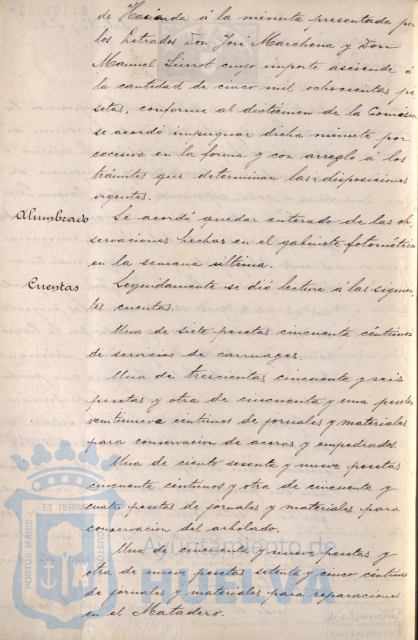 de Hacienda á la minuta presentada por
los Letrados Don José Marchena y Don
Manuel Siurot cuyo importe asciende á
la cantidad de cinco mil ochocientas pe
setas, conforme al dictámen de la Comision
se acordó impugnar dicha minuta por
excesiva en la forma y con arreglo á los
trámites que determinan las disposiciones
vigentes.
Alumbrado Se acordó quedar enterado de las ob
servaciones hechas en el gabinete fotométrico
en la semana última.
Cuentas Seguidamente se dió lectura á las siguien
tes cuentas:
Una de siete pesetas cincuenta céntimos
de servicios de carruages.
Una de trescientas cincuenta y seis
pesetas y otra de cincuenta y una pesetas
veintinueve céntimos de jornales y materiales
para conservacion de aceras y empedrados.
Una de ciento sesenta y nueve pesetas
cincuenta céntimos y otra de cincuenta y
cuatro pesetas de jornales y materiales para
conservacion del arbolado.
Una de cincuenta y nueve pesetas y
otra de nueve pesetas setenta y cinco céntimos
de jornales y materiales para reparaciones
en el Matadero.
PORTUS MARIS ET TERRAE CUSTODIA
Ayuntamiento de
HUELVA